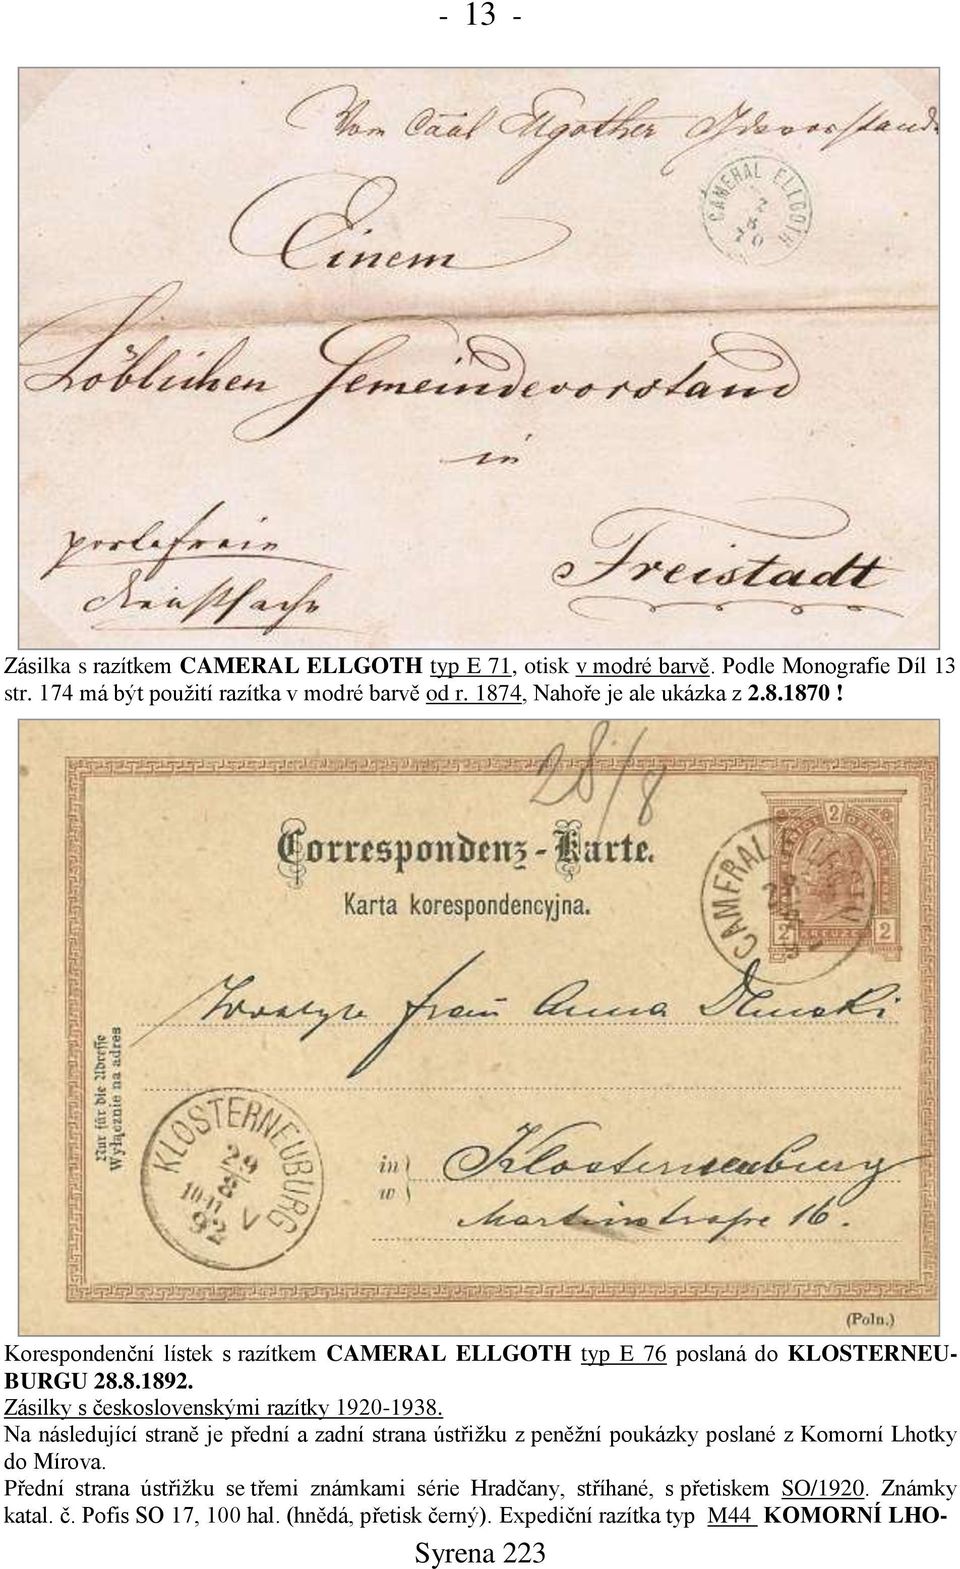 - 13 -
Vom Caal Ellgother Gdevorstande
CAMERAL ELLGOTH
Einem
Löblichen Gemeindevorstand
in
portofrein
Freistadt
Dienstsache
Zásilka s razítkem CAMERAL ELLGOTH typ E 71, otisk v modré barvě. Podle Monografie Díl 13
str. 174 má být použití razítka v modré barvě od r. 1874, Nahoře je ale ukázka z 2.8.1870!
28/8
2
Correspondenz-Karte.
Karta korespondencyjna.
CAMERAL ELLGOTH
2 KREUZER 2
frau Anna
Nur für die Adresse
Wyłącznie na adres
KLOSTERNEUBURG
29
8
10-11 V
92
in
w
Klosterneuburg
Martinstrasse 16.
(Poln.)
Korespondenční lístek s razítkem CAMERAL ELLGOTH typ E 76 poslaná do KLOSTERNEU-
BURGU 28.8.1892.
Zásilky s československými razítky 1920-1938.
Na následující straně je přední a zadní strana ústřižku z peněžní poukázky poslané z Komorní Lhotky
do Mírova.
Přední strana ústřižku se třemi známkami série Hradčany, stříhané, s přetiskem SO/1920. Známky
katal. č. Pofis SO 17, 100 hal. (hnědá, přetisk černý). Expediční razítka typ M44 KOMORNÍ LHO-
Syrena 223